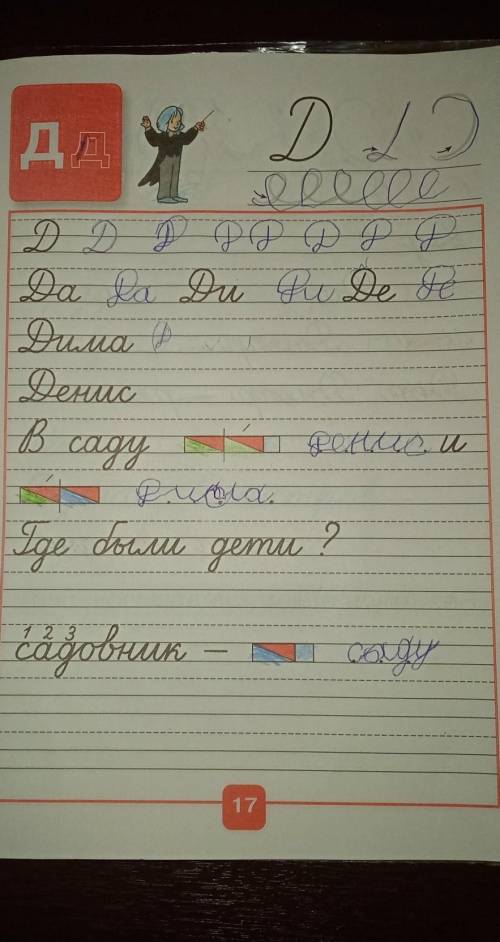 Д Д Д
Д Д Д Д Д Д Д Д
Да Да Ди Ди Де Де
Дима Д
Денис
В саду денис и
дима.
Где были дети?
1 2 3
садовник – сыду
17